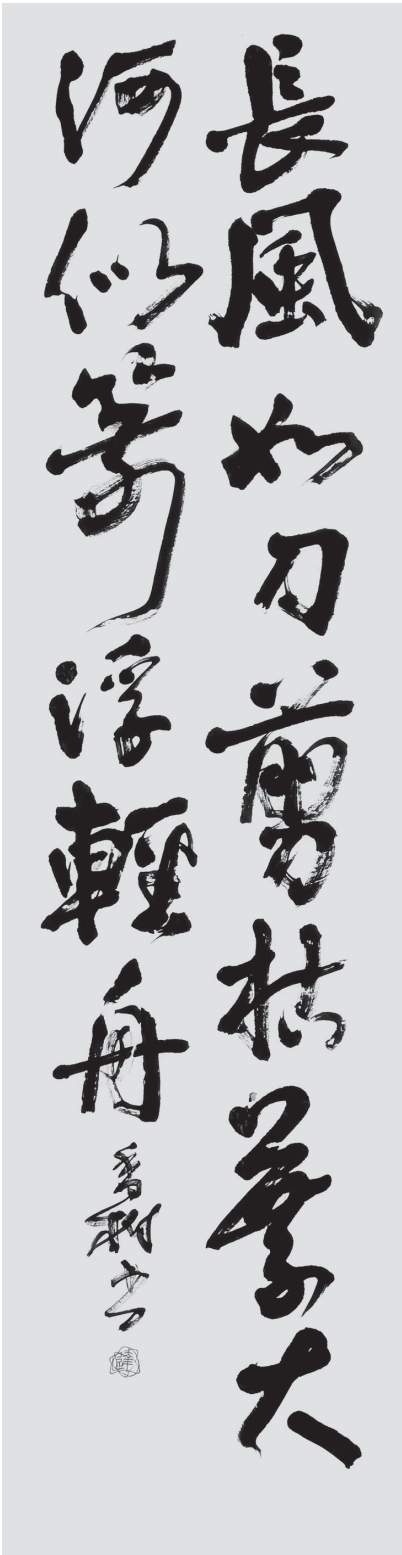 長風如刀剪枯葉大
河似箭浮輕舟
香樹書